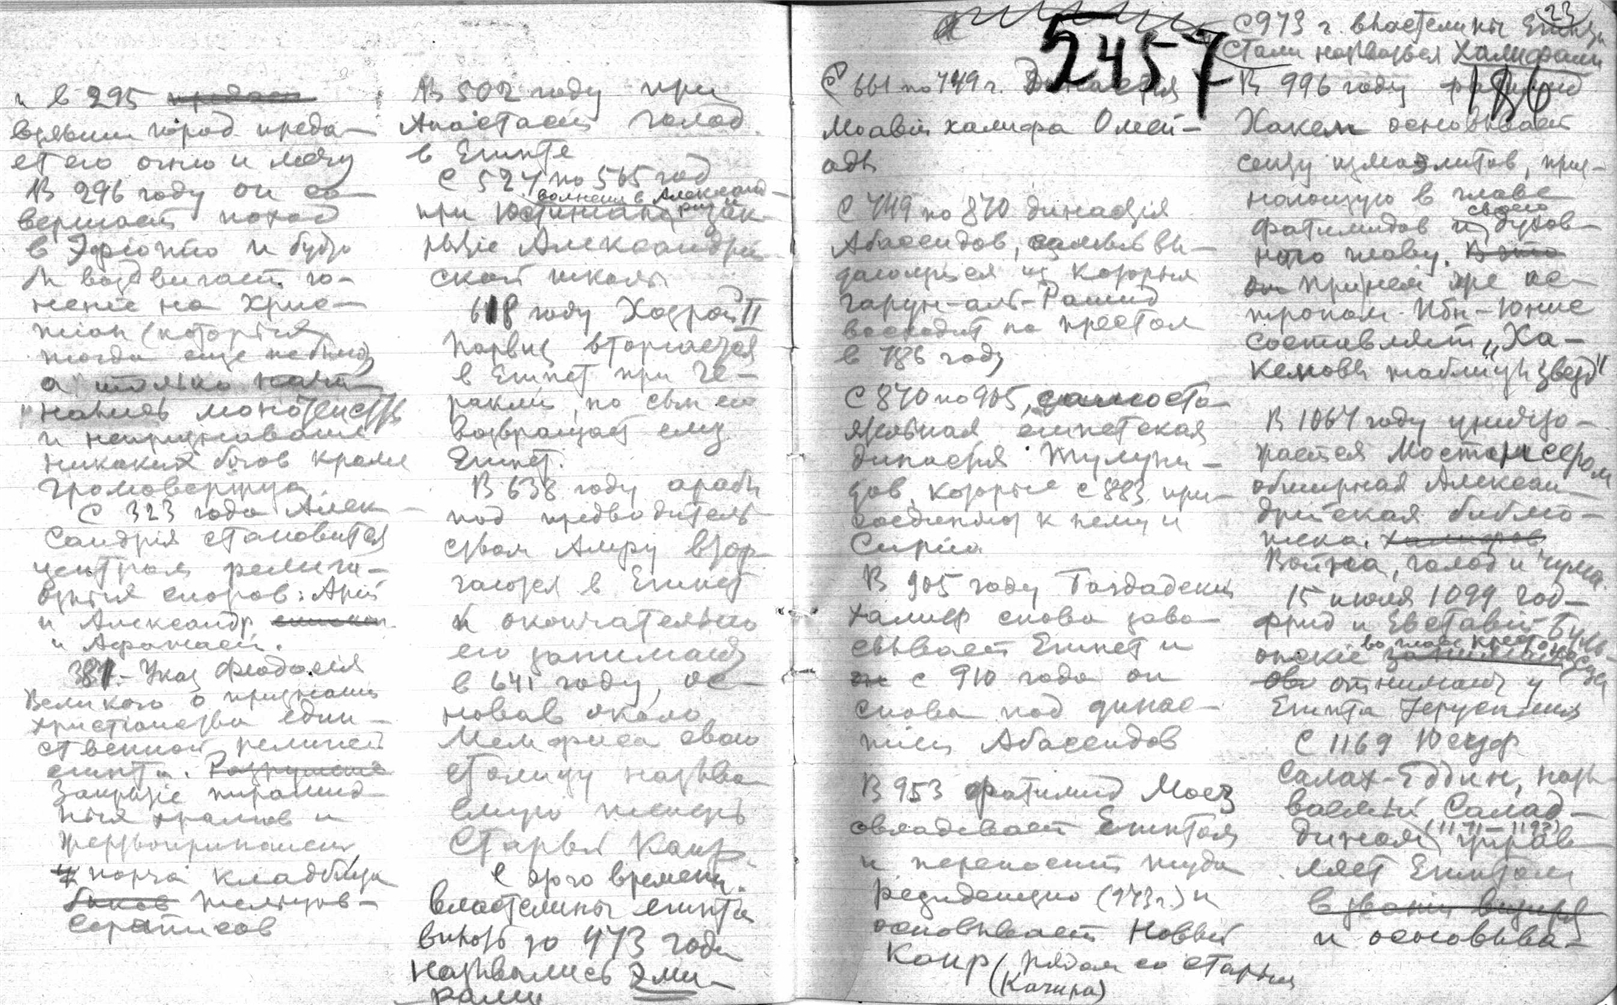 и в 295 предаст
взявши город преда-
ет его огню и мечу
В 296 году он со-
вершает поход
в Эфіопію и будто
бы воздвигает го-
неніе на Хрис-
тіан (которыя
тогда еще не были,
а только
начись монотеистъ
и непризнаванія
никаких богов кроме
громовержца
С 323 года Алек-
сандрія становится
центром религи-
озных споров: Арій
и Александр
и Афанасій.
381 - Указ Феодосія
Великого о признаніи
христіанства един-
ственной религіей
египта. Разрушение
Закрытіе пирамид-
ных храмов и
жертвоприношеній
и порча кладбища
быков тельцов-
серапісов
В 502 году при
Анастасіи голод
в Египте
С 527 по 565 год
волненія в Александ-
рии и
при Юстиніане зак-
рытіе Александрій-
ской школы
618 году Хозрой II
Парвиз вторгается
в Египет при Ге-
раклии, но сын его
возвращает ему
Египет.
В 638 году арабы
под предводитель-
ством Амру втор-
гаются в Египет
и окончательно
его занимают
в 641 году, ос-
новав около
Мемфиса свою
столицу называ
емую теперь
Старый Каир.
С этого времени
властелины египта
вплоть до 973 года
назывались Эми-
рами
2457
23
186
С 661 по 749 г. Династія
Моавіи халифа Омей-
адъ
С 749 по 870 династія
Абассидов, самый вы-
дающійся из которых
Гарун-аль-Рашид
восходит на престол
в 786 году
С 870 по 905, самосто
ятельная египетская
династія Тулуни-
дов, которые с 883 при-
соединяют к нему и
Сирію
В 905 году Багдадский
халиф снова заво-
евывает Египет и
он с 910 года он
снова под динас-
тіей Абассидов
В 953 фатимид Моез
овладевает Египтом
и переносит туда
резиденцию (973 г.) и
основывает Новый
Каир (рядом со старым
(Кагира)
С 973 г. властелины Египта
стали называться Халифами
В 996 году фатимид
Хакем основывает
секту измаэлитов, приз-
нающую в главе
фатимидов и своего духов-
ного главу. В это
он При нем же ас-
троном Ибн-Юнис
составляет „Ха-
кемовы таблицы звезд"
В 1067 году уничто-
жается Мостансером
обширная Александ-
дрийская библио-
тека. халифов
Война, голод и чума.
15 июля 1099 Год-
фрид и Евстафий Буль-
онскіе во главе крестоносцев
отнимают у
Египта Іерусалим
С 1169 Юсуф
Салах-Еддин, назы
ваемый Салад-
дином (1171-1193) управ-
ляет Египтом
в звании визиря
и основыва-